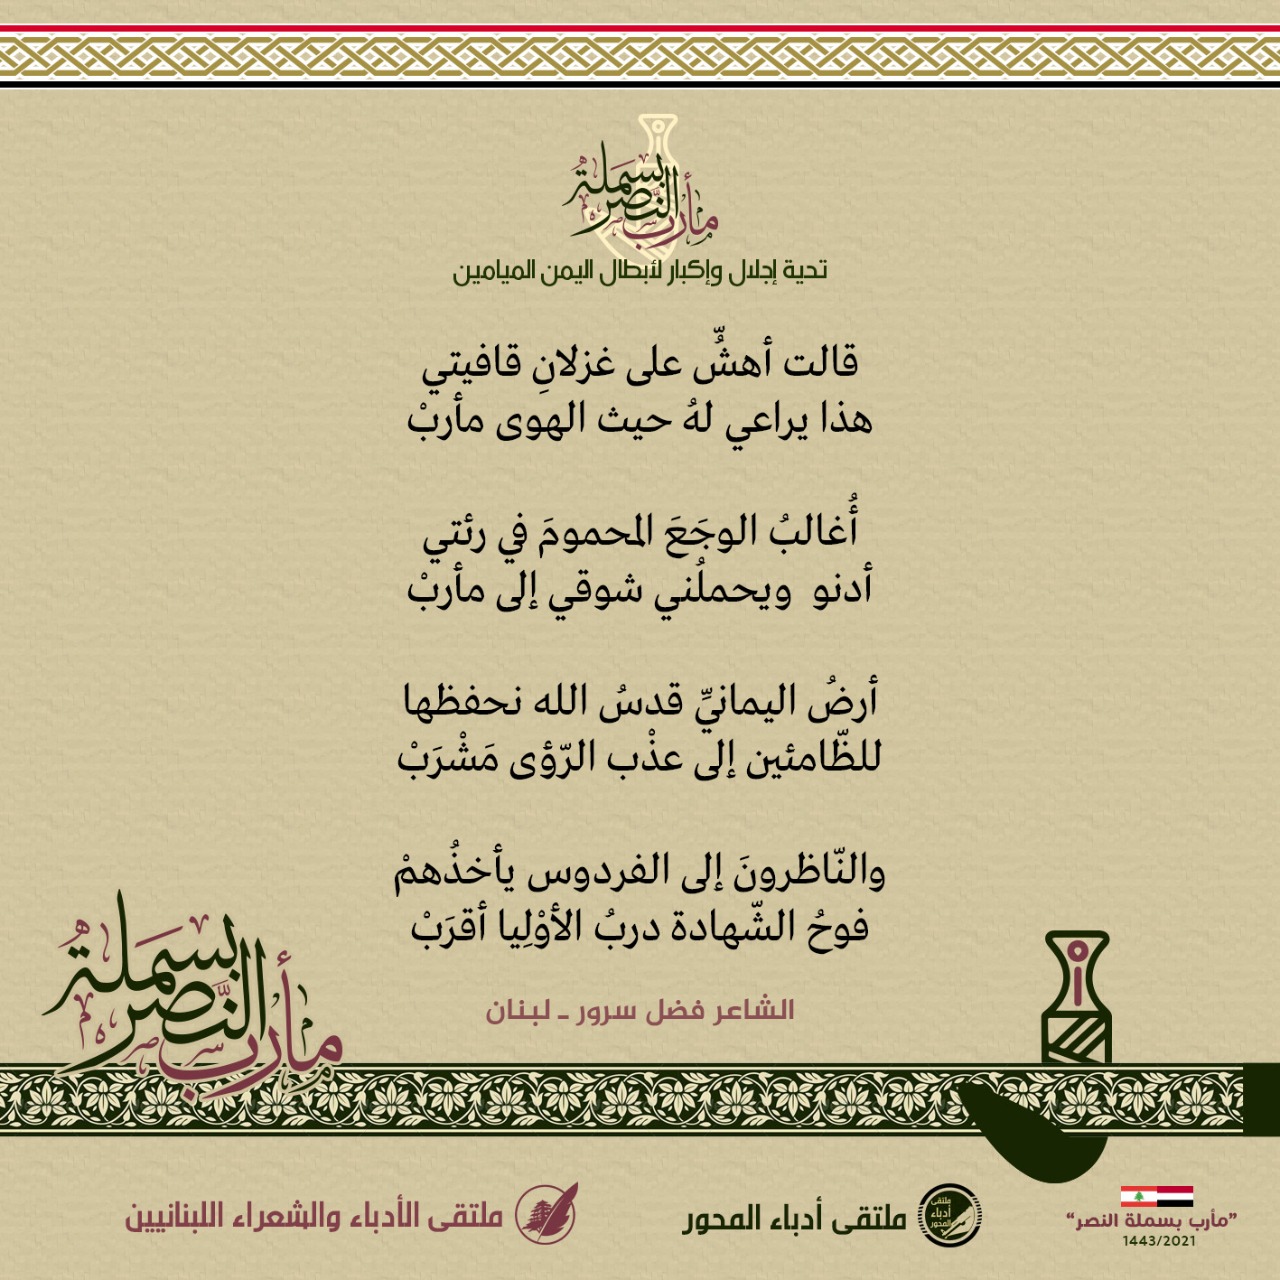 مأرب بسملة النصر
تحية إجلال وإكبار لأبطال اليمن الميامين
قالت أهشُّ على غزلانِ قافيتي
هذا يراعي لهُ حيث الهوى مأربْ
أُغالبُ الوجَعَ المحمومَ في رئتي
أدنو ويحملُني شوقي إلى مأربْ
أرضُ اليمانيِّ قدسُ الله نحفظها
للظّامئين إلى عذْب الرّؤى مَشْرَبْ
والنّاظرونَ إلى الفردوس يأخذُهمْ
فوحُ الشّهادة دربُ الأوْلِيا أقرَبْ
الشاعر فضل سرور ـ لبنان
مأرب بسملة النصر
”مأرب بسملة النصر“
1443/2021
ملتقى أدباء المحور
ملتقى أدباء المحور
ملتقى الأدباء والشعراء اللبنانيين